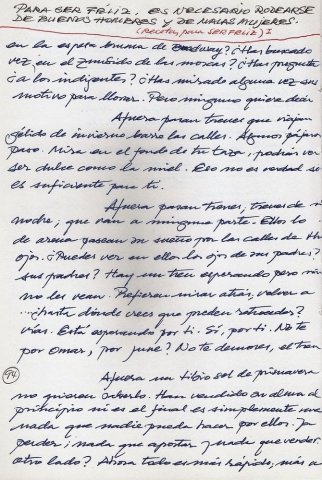 PARA SER FELIZ, ES NECESARIO RODEARSE
DE BUENOS HOMBRES Y DE MALAS MUJERES.
(RECETAS, PARA SER FELIZ) I
en la espesa bruma de ¿Has buscado
vez, en el zumbido de las moscas? ¿Has pregunta
¿a los indigentes? ¿Has mirado alguna vez sus
motivo para llorar. Pero ninguno quiere decir
Afuera pasan trenes que viajan
gélido de invierno barre las calles. Algunos pájaros
paso. Mira en el fondo de tu taza, podrían ver
ser dulce como la miel. Eso no es verdad
es suficiente para ti.
Afuera pasan trenes, trenes de
madre, que van a ninguna parte. Ellos lo
de arena pasean su sueño por las calles de
ojos. ¿Puedes ver en ellos los ojos de mi padre?
sus padres? Hay un tren esperando pero
no les vean. Prefieren mirar atrás, volver a
¿Hasta dónde crees que pueden retroceder?
vías. Está esperando por ti. Sí, por ti. No te
por amar, por ? No te demores, el tren
94
Afuera un tibio sol de primavera
no quisieron Han vendido su alma al
principio ni es el final es simplemente una
nada que nadie pueda hacer por ellos.
perder; nada que apostar y nada que vender.
otro lado? Ahora todo es más rápido, más a